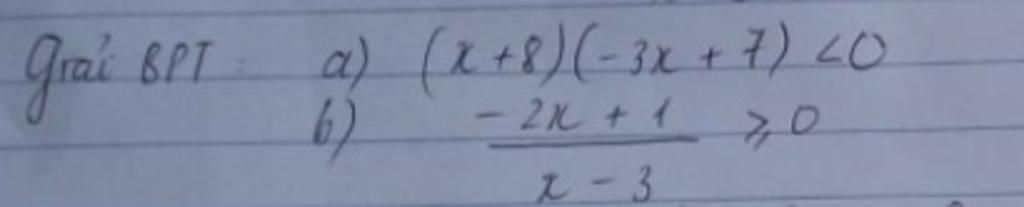 Giải BPT: a) (x+8)(-3x+7) <0
b) (-2x+1)/(x-3) ≥0